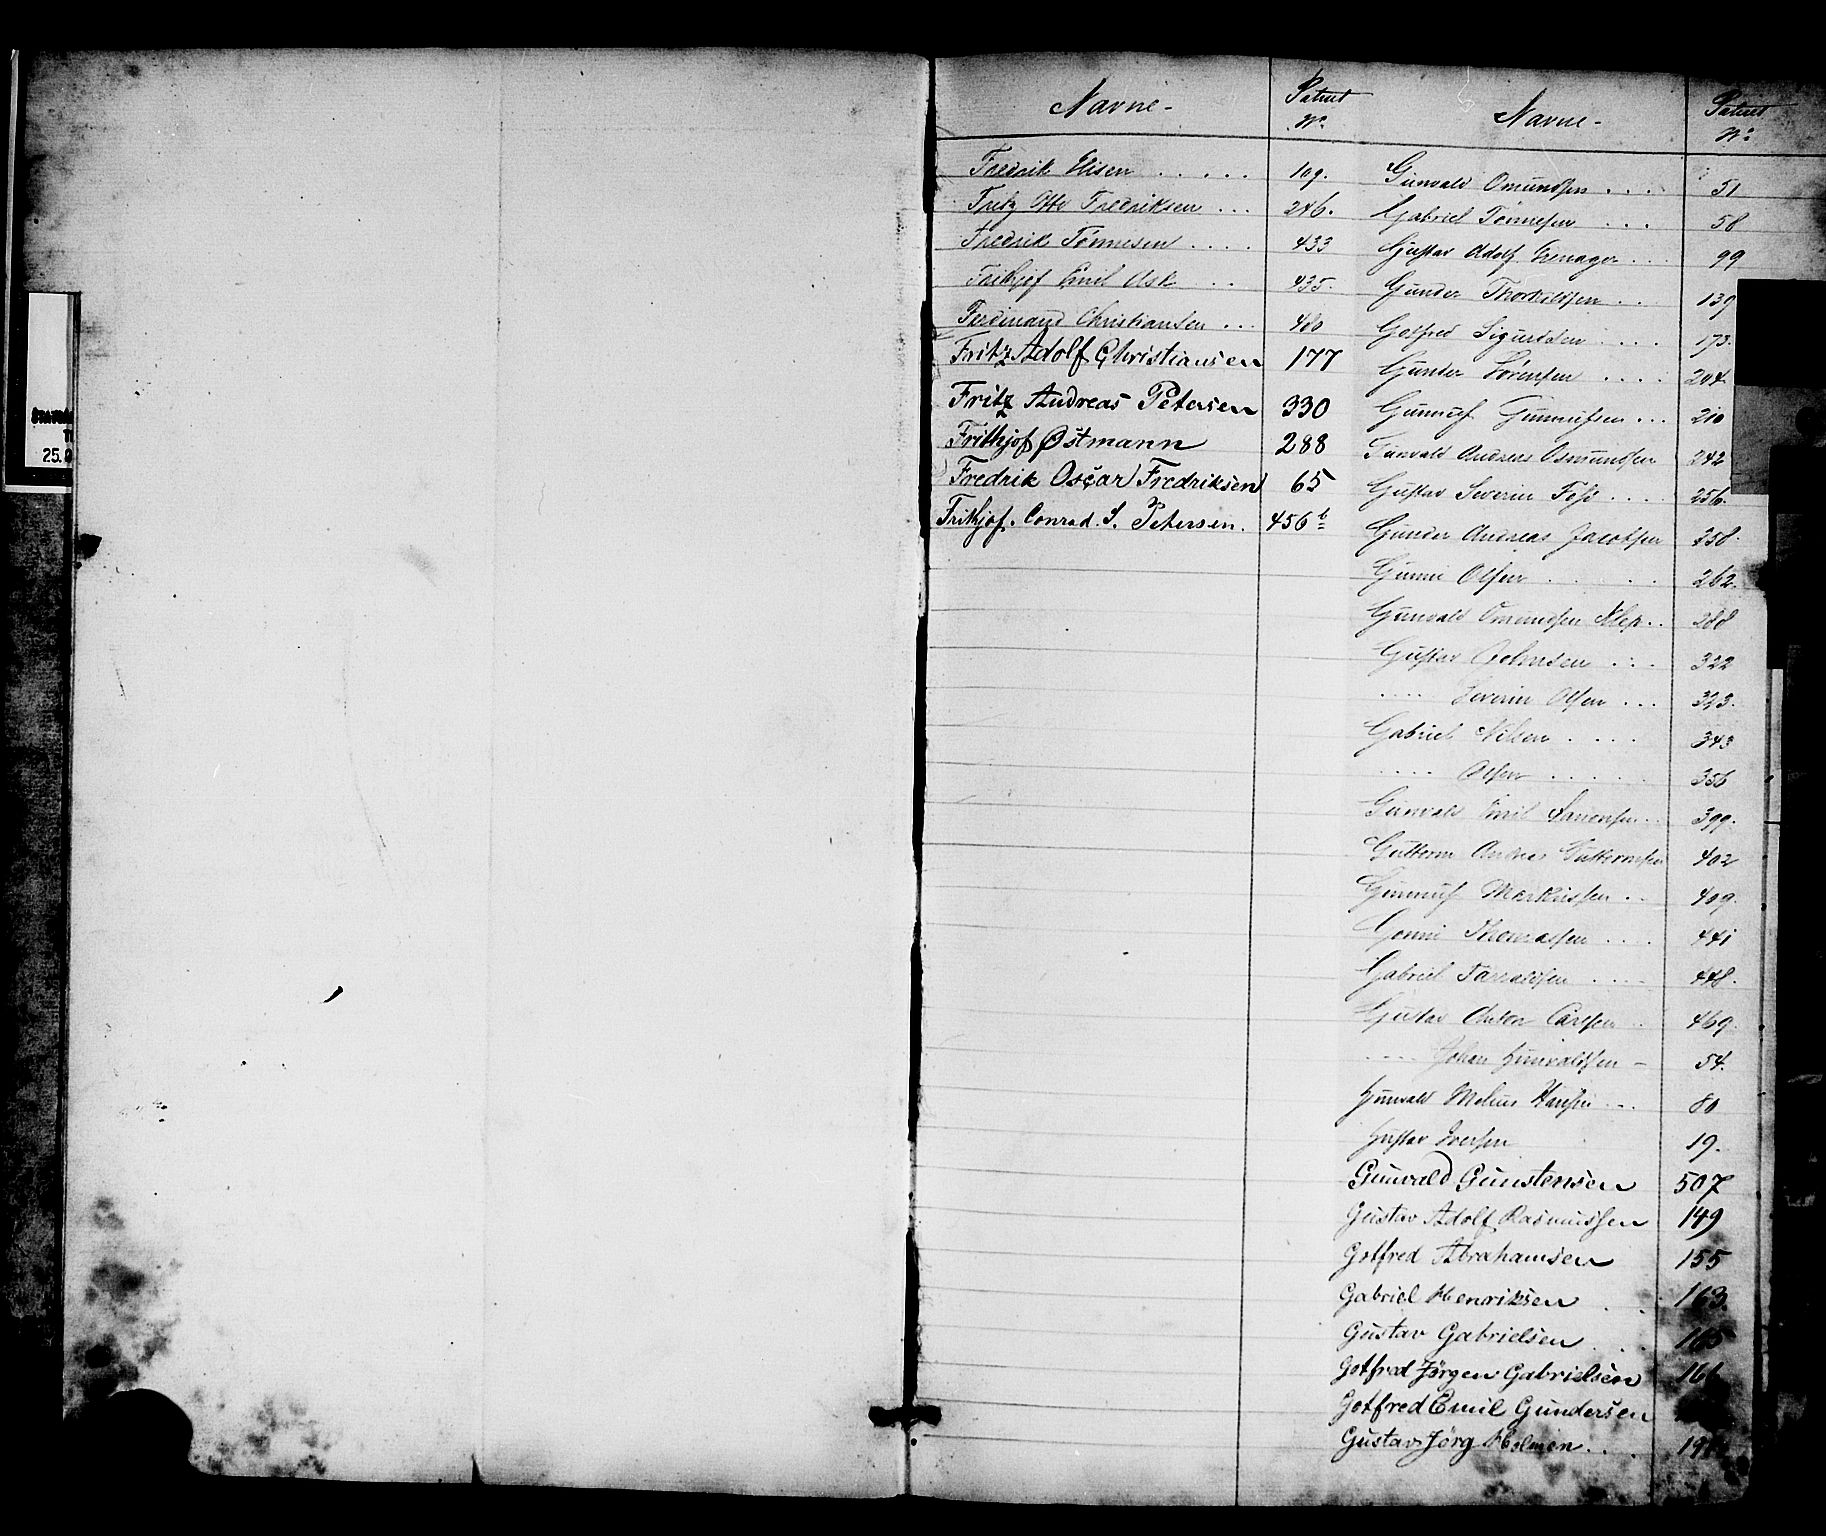 Navne-
Patent
No
Fredrik Elisen . . . . . 109.
Fritz Otto Fredriksen ... 246.
Fredrik Tönnesen .... 433
Frithjof Emil Ask . . 435.
Ferdinand Christiansen ... 480
Fritz Adolf Christiansen 177
Fritz Andreas Petersen 330
Frithjof Østmann 288
Fredrik Oscar Fredriksen 65
Frithjof. Conrad. S. Petersen. 456 b
Navne-
Patent
No
Gunvald Omundsen . . . 51
Gabriel Tönnesen . . . 58
Gustav Adolf . . . 99
Gunder Thorkildsen . . 139
Gotfred Sigurdsen . . . . 173.
Gunder Sörensen . . . . 204.
Gunnuf Gunnufsen ... 210
Gunvald Andreas Osmundsen 242
Gustav Severin . . . . 256.
Gunder Andreas Jacobsen 258.
Gunni Olsen . . . . 262.
Gunvald Omundsen Klep.. 288
Gustav . . . 322
.... Severin Olsen ... 323.
Gabriel Nilsen . . . . 343
.... Olsen . . . . . 356
Gunvald Emil .. 399.
Guttorm Andreas Guttormsen 402
Gunnuf Markussen .. 409.
Gonni Thomassen .... 441
Gabriel Tarraldsen .... 448.
Gustav Anton Carlsen . 469.
.... Johan Gunvaldsen - 54.
Gunvald Melius Hansen ... 80
Gustav Iversen 19.
Gunvald Gunstensen 507
Gustav Adolf Rasmussen 149
Gotfred Abrahamsen 155
Gabriel Henriksen . . 163.
Gustav Gabrielsen . . . 165
Gotfred Jörgen Gabrielsen 166
Gotfred Emil Gundersen
Gustav Jörg Holmen . . .
25.